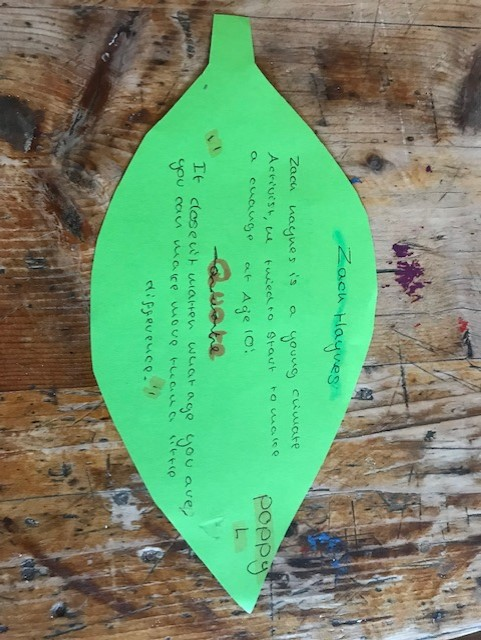 Zach Haynes
Zach haynes is a young climate
Activist, he tried to start to make
a change at Age 10:
" It dosen't matter what age you are,
you can make more than a little
difference."
poppy
L